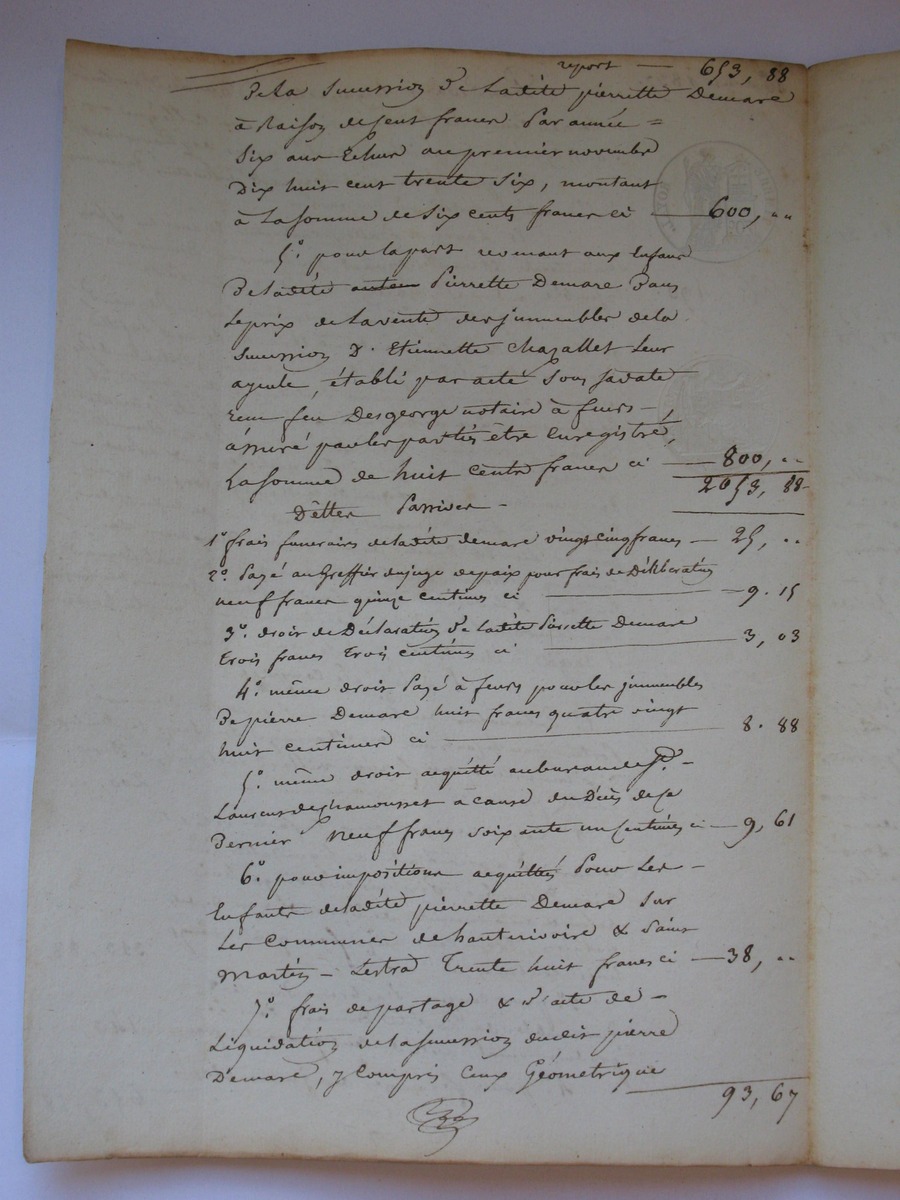 report — 653, 88
De La Succession de Ladite pierrette Demare
à Raison de Cent francs Par année =
Six ans Echus au premier novembre
Dix huit cent trente Six, montant
à La somme de Six cents francs ci — 600, "
5° pour la part revenant aux Enfans
De ladite Pierrette Demare Dans
Le prix de La vente des jmmeubles de la
Succession D. Etiennette Chazallet Leur
ayeule, établi par acte Sous Sa date
Reçu feu Desgeorge notaire à feurs —
assuré par les parties être Enregistré,
La Somme de huit cents francs ci — 800, "
2053, 88
Dettes Passives —
1° frais funeraires de ladite demare vingt cinq francs — 25, "
2° Payé au Greffier du juge de paix pour frais de Délibération
neuf francs quinze centimes ci — 9. 15
3° droit de Déclaration de Ladite Pierrette Demare
Trois francs Trois centimes ci — 3, 03
4° même droit Payé à feurs pour les jmmeubles
De pierre Demare huit francs quatre vingt
huit centimes ci — 8. 88
5° même droit acquitté au bureau de St. —
Laurent de Chamousset à cause du Décès de Ce
Dernier Neuf francs soixante un Centimes ci — 9, 61
6° pour impositions acquittées Pour Les —
Enfants de ladite pierrette Demare Sur
Les Communes de hauterivoire & Saint
Martin — Lestra Trente huit francs ci — 38, "
7° frais de partage & d'acte de —
Liquidation de la Succession dudit pierre
Demare, y Compris Ceux Géometrique
93, 67